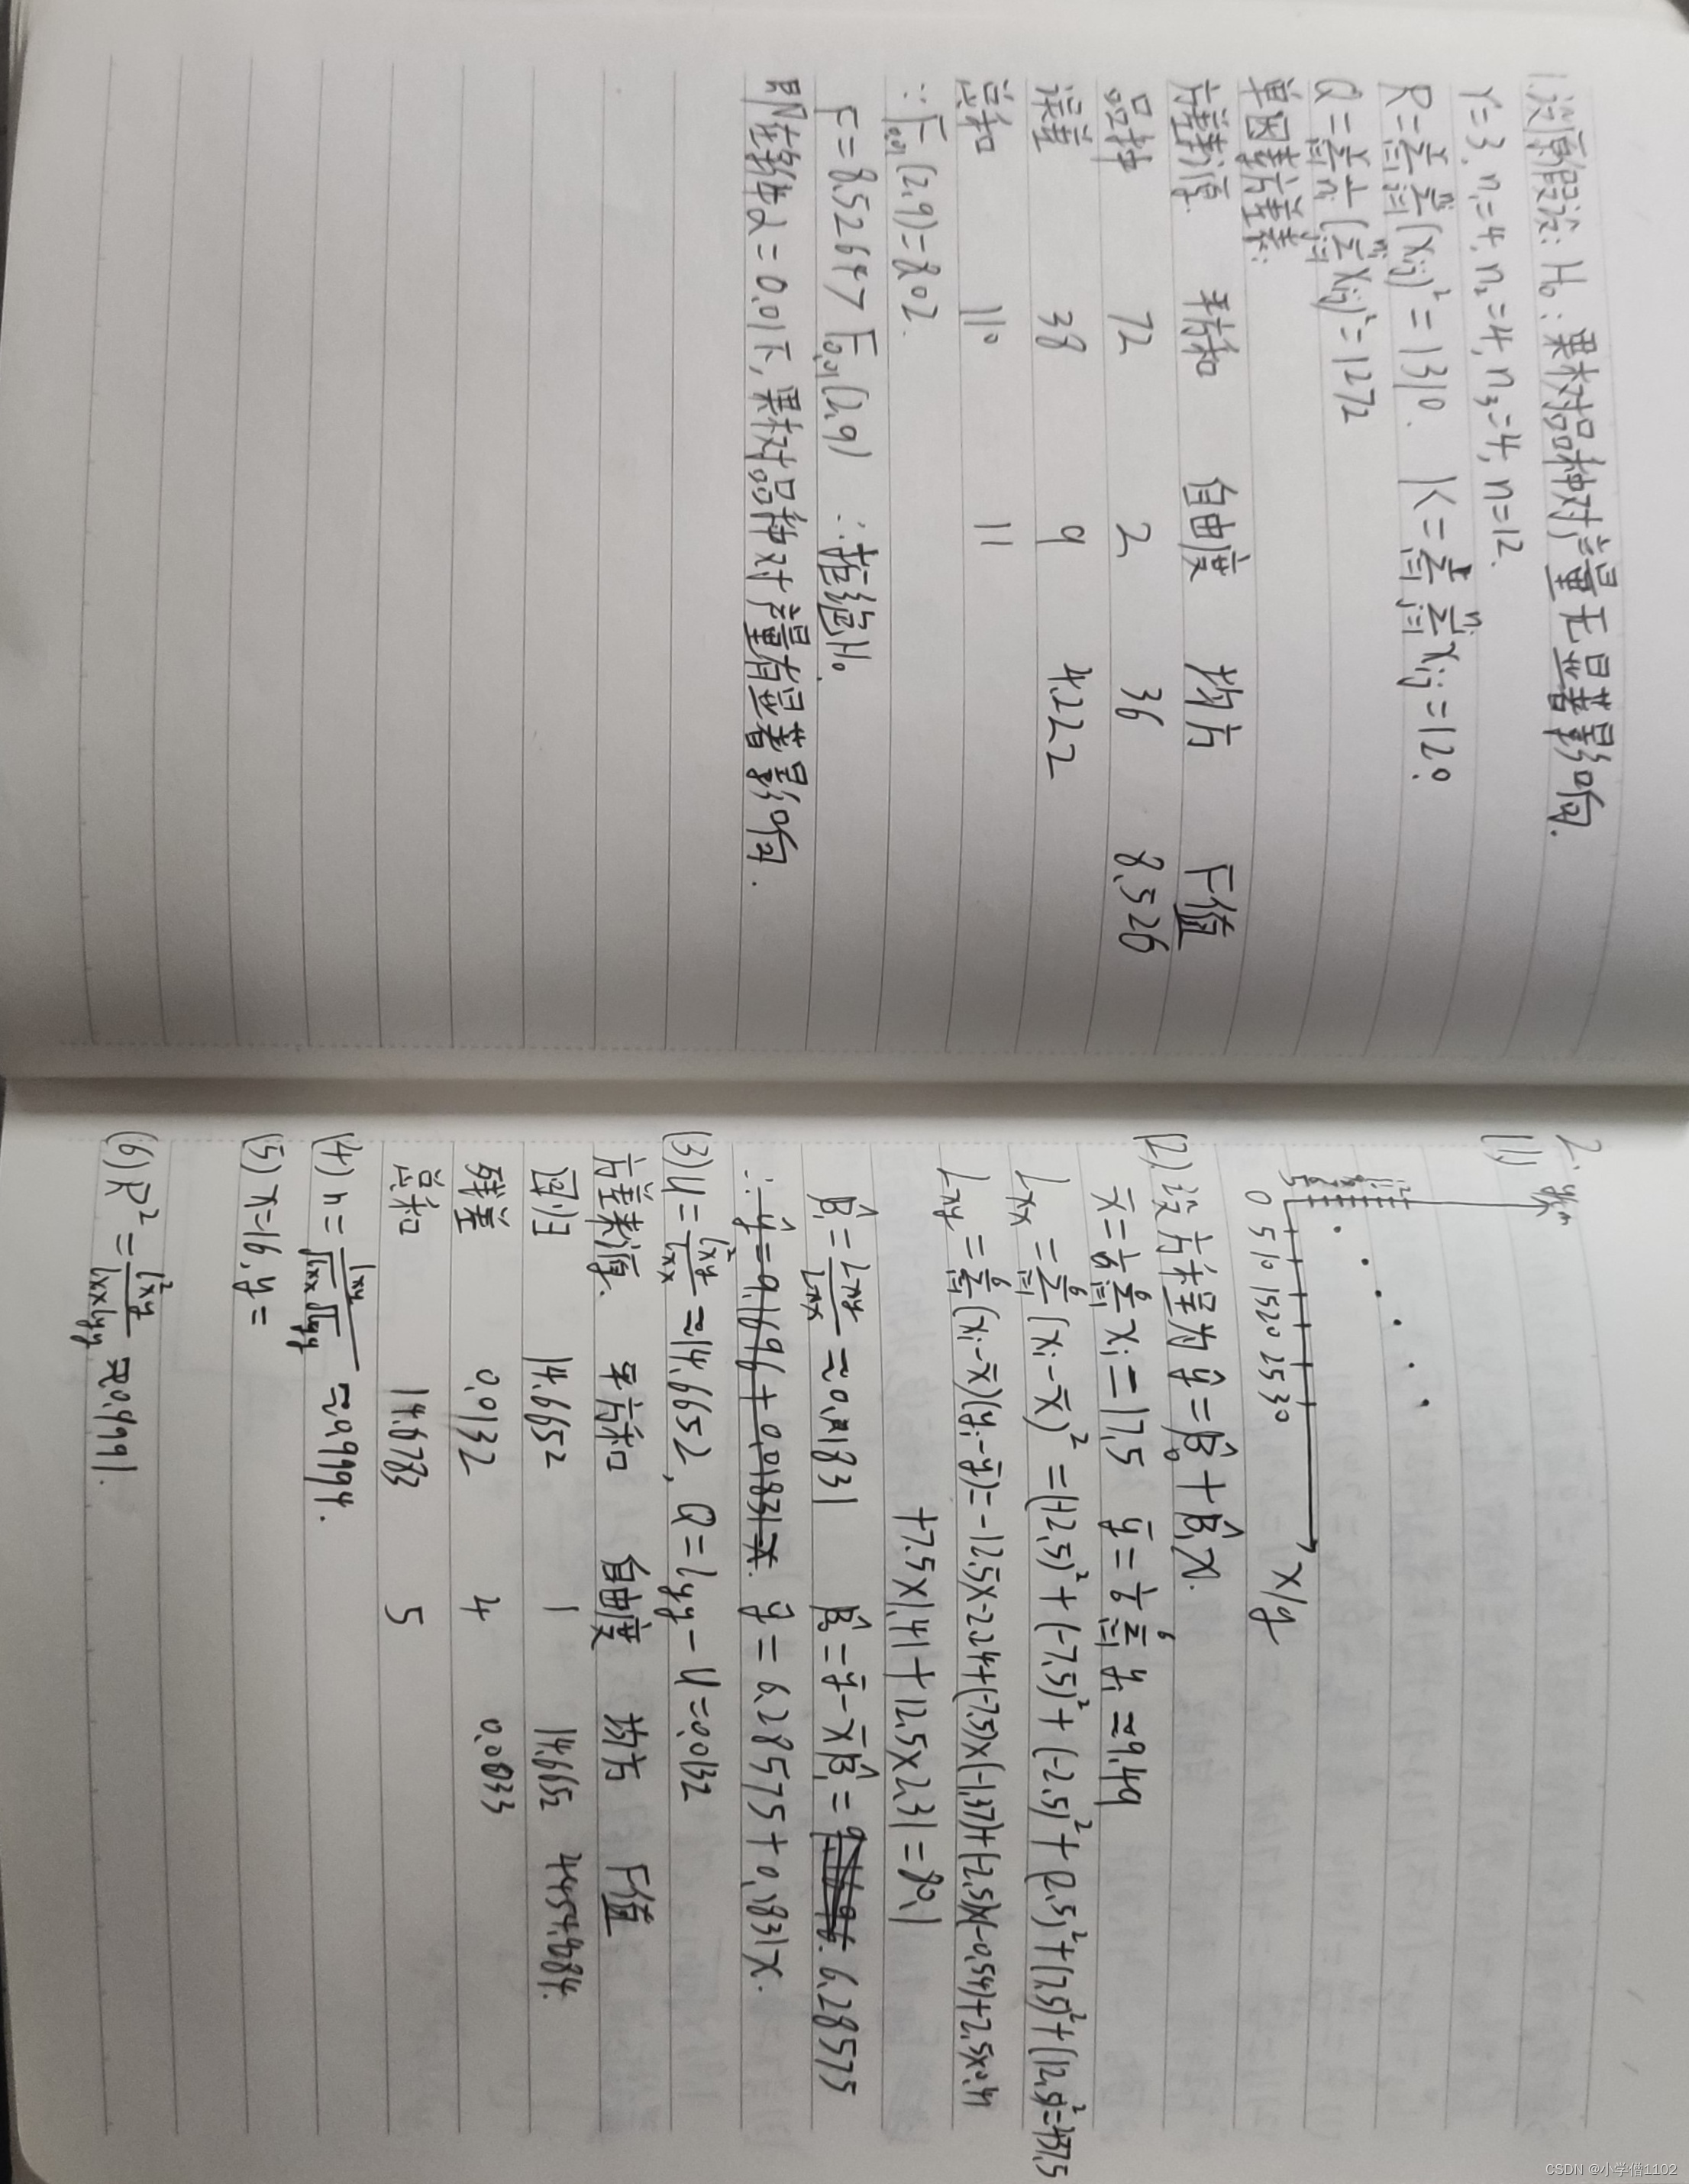 1.设原假设：H₀：果树品种对产量无显著影响.
r=3, n₁=4, n₂=4, n₃=4, n=12.
R=Σ(i=1→r)Σ(j=1→nᵢ)(xᵢⱼ)²=1310. K=Σ(i=1→r)Σ(j=1→nᵢ)xᵢⱼ=120
Q=Σ(i=1→r)1/nᵢ(Σ(j=1→nᵢ)xᵢⱼ)²=1272
单因素方差表:
方差来源 平方和 自由度 均方 F值
品种 72 2 36 8.526
误差 38 9 4.222
总和 110 11
∵F0.01(2,9)=8.02.
F=8.526>F0.01(2,9) ∴拒绝H₀.
即在条件α=0.01下,果树品种对产量有显著影响.
2.
(1)
0 5 10 15 20 25 30 x/g
(2)设方程为ŷ=β̂₀+β̂₁x.
x̄=1/6Σ(i=1→6)xᵢ=17.5 ȳ=1/6Σ(i=1→6)yᵢ≈9.49
Lxx=Σ(i=1→6)(xᵢ-x̄)²=(12.5)²+(-7.5)²+(-2.5)²+(2.5)²+(7.5)²+(12.5)²=437.5
Lxy=Σ(i=1→6)(xᵢ-x̄)(yᵢ-ȳ)=-12.5×-2.24+(-7.5)×(-1.37)+(-2.5)×(-0.54)+2.5×0.41
+7.5×1.41+12.5×2.31=80.1
β̂₁=Lxy/Lxx≈0.1831 β̂₀=ȳ-x̄β̂₁=6.28575
∴ŷ=9.1696+0.01831x. ŷ=6.28575+0.1831x.
(3)U=L²xy/Lxx≈14.6652, Q=Lyy-U=0.0132
方差来源. 平方和 自由度 均方 F值
回归 14.6652 1 14.6652
残差 0.0132 4 0.0033
总和 14.6783 5
(4)r=Lxy/√Lxx√Lyy≈0.9994.
(5)x=16, y=
(6)R²=L²xy/LxxLyy≈0.9991.
CSDN @小学僧1102